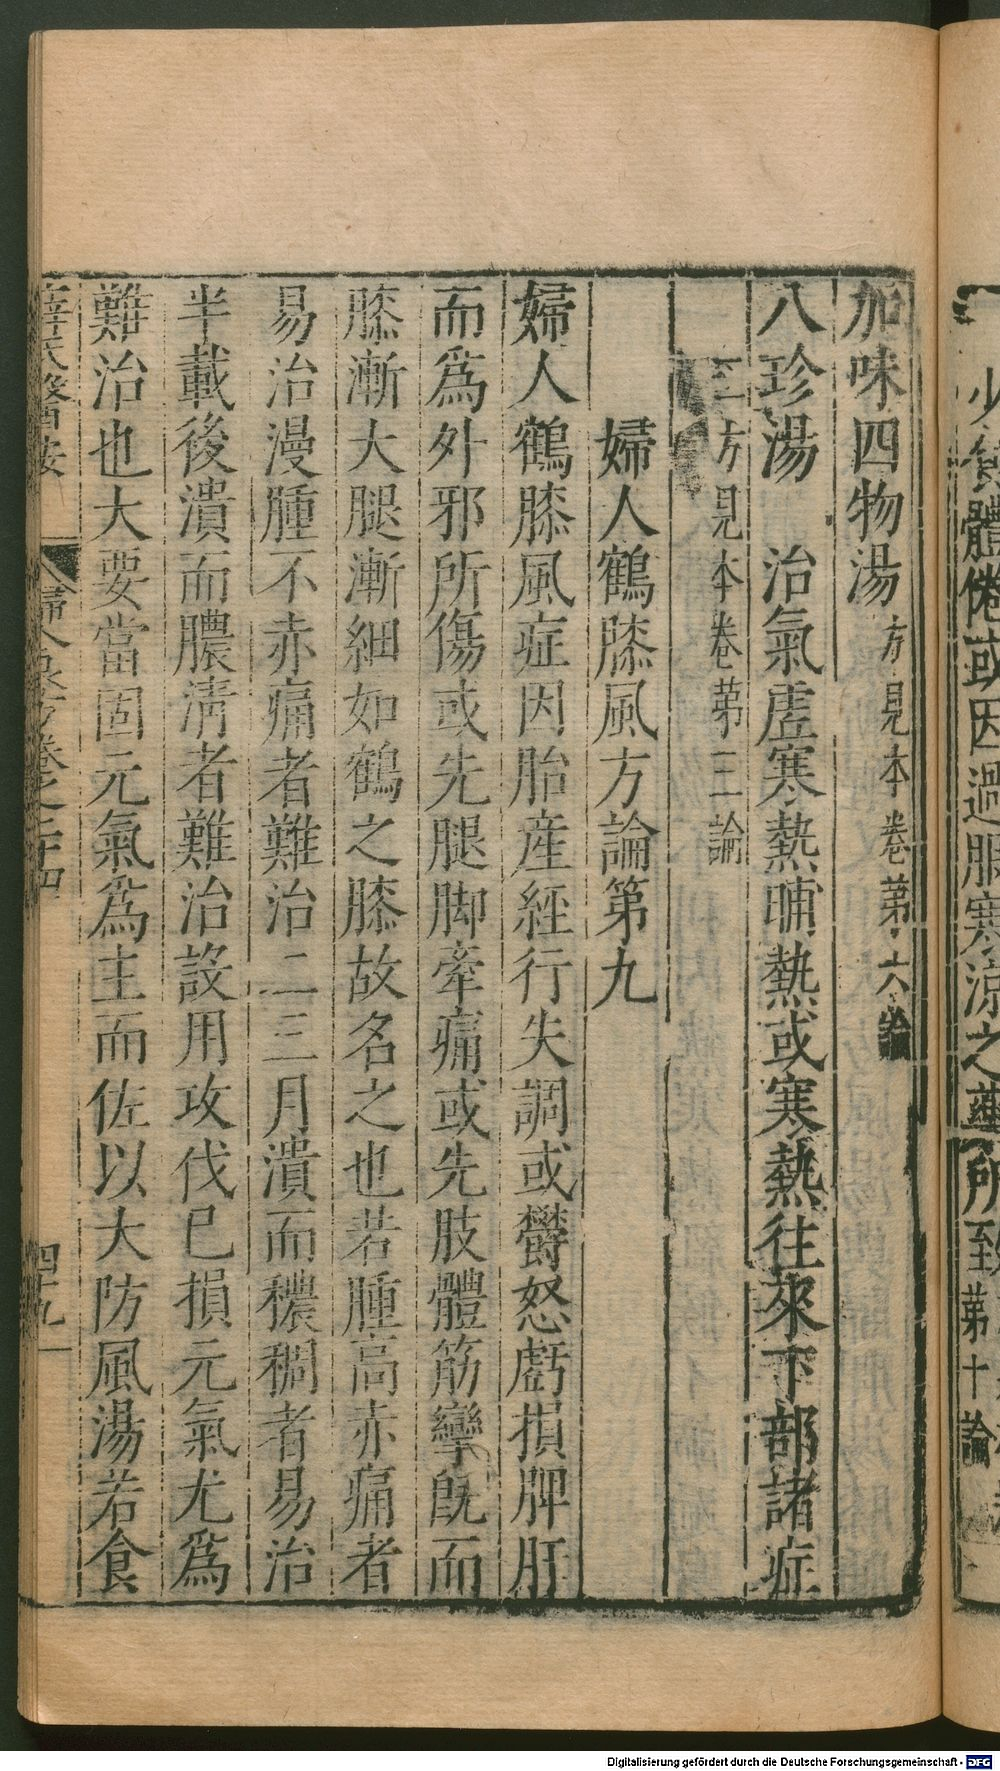 少食體倦或因過服寒涼之藥所致
第十論
加味四物湯方見本卷第六論
八珍湯　治氣虛寒熱晡熱或寒熱往來下部諸症
二方見本卷第三論
婦人鶴膝風方論第九
婦人鶴膝風症因胎產經行失調或欝怒虧損脾肝
而為外邪所傷或先腿脚牽痛或先肢體筋攣旣而
膝漸大腿漸細如鶴之膝故名之也若腫高赤痛者
易治漫腫不赤痛者難治二三月潰而穠稠者易治
半載後潰而膿淸者難治設用攻伐已損元氣尤為
難治也大要當固元氣為主而佐以大防風湯若食
薛氏醫按　婦人良方卷之二十四　四十九
Digitalisierung gefördert durch die Deutsche Forschungsgemeinschaft - DFG